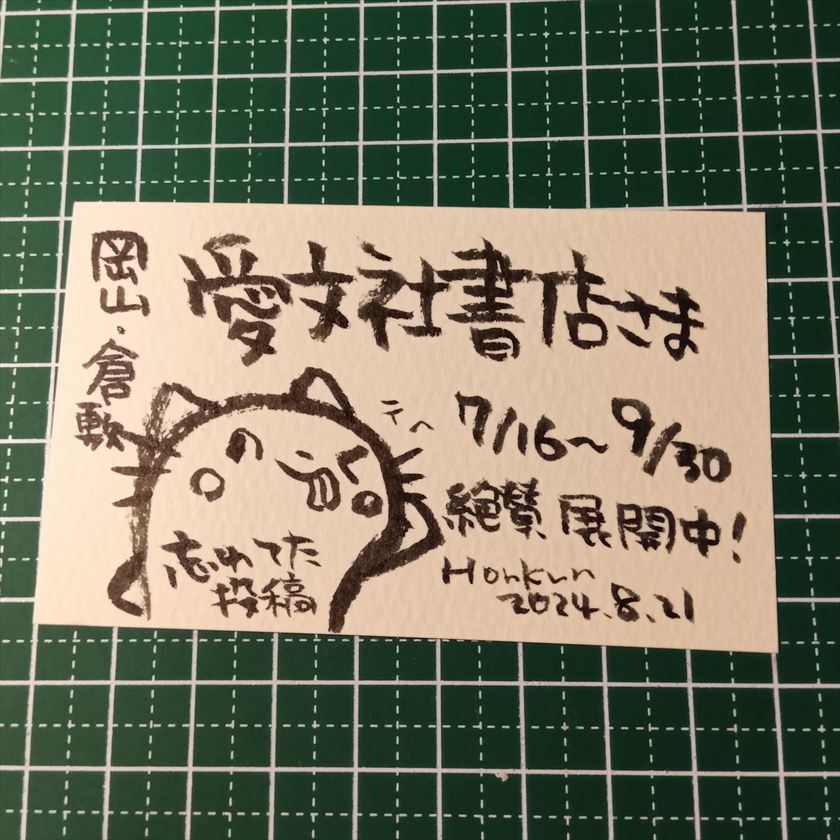 岡山・倉敷
愛文社書店さま
テヘ
7/16〜9/30
絶賛展開中！
忘れてた
投稿
Honkun
2024.8.21